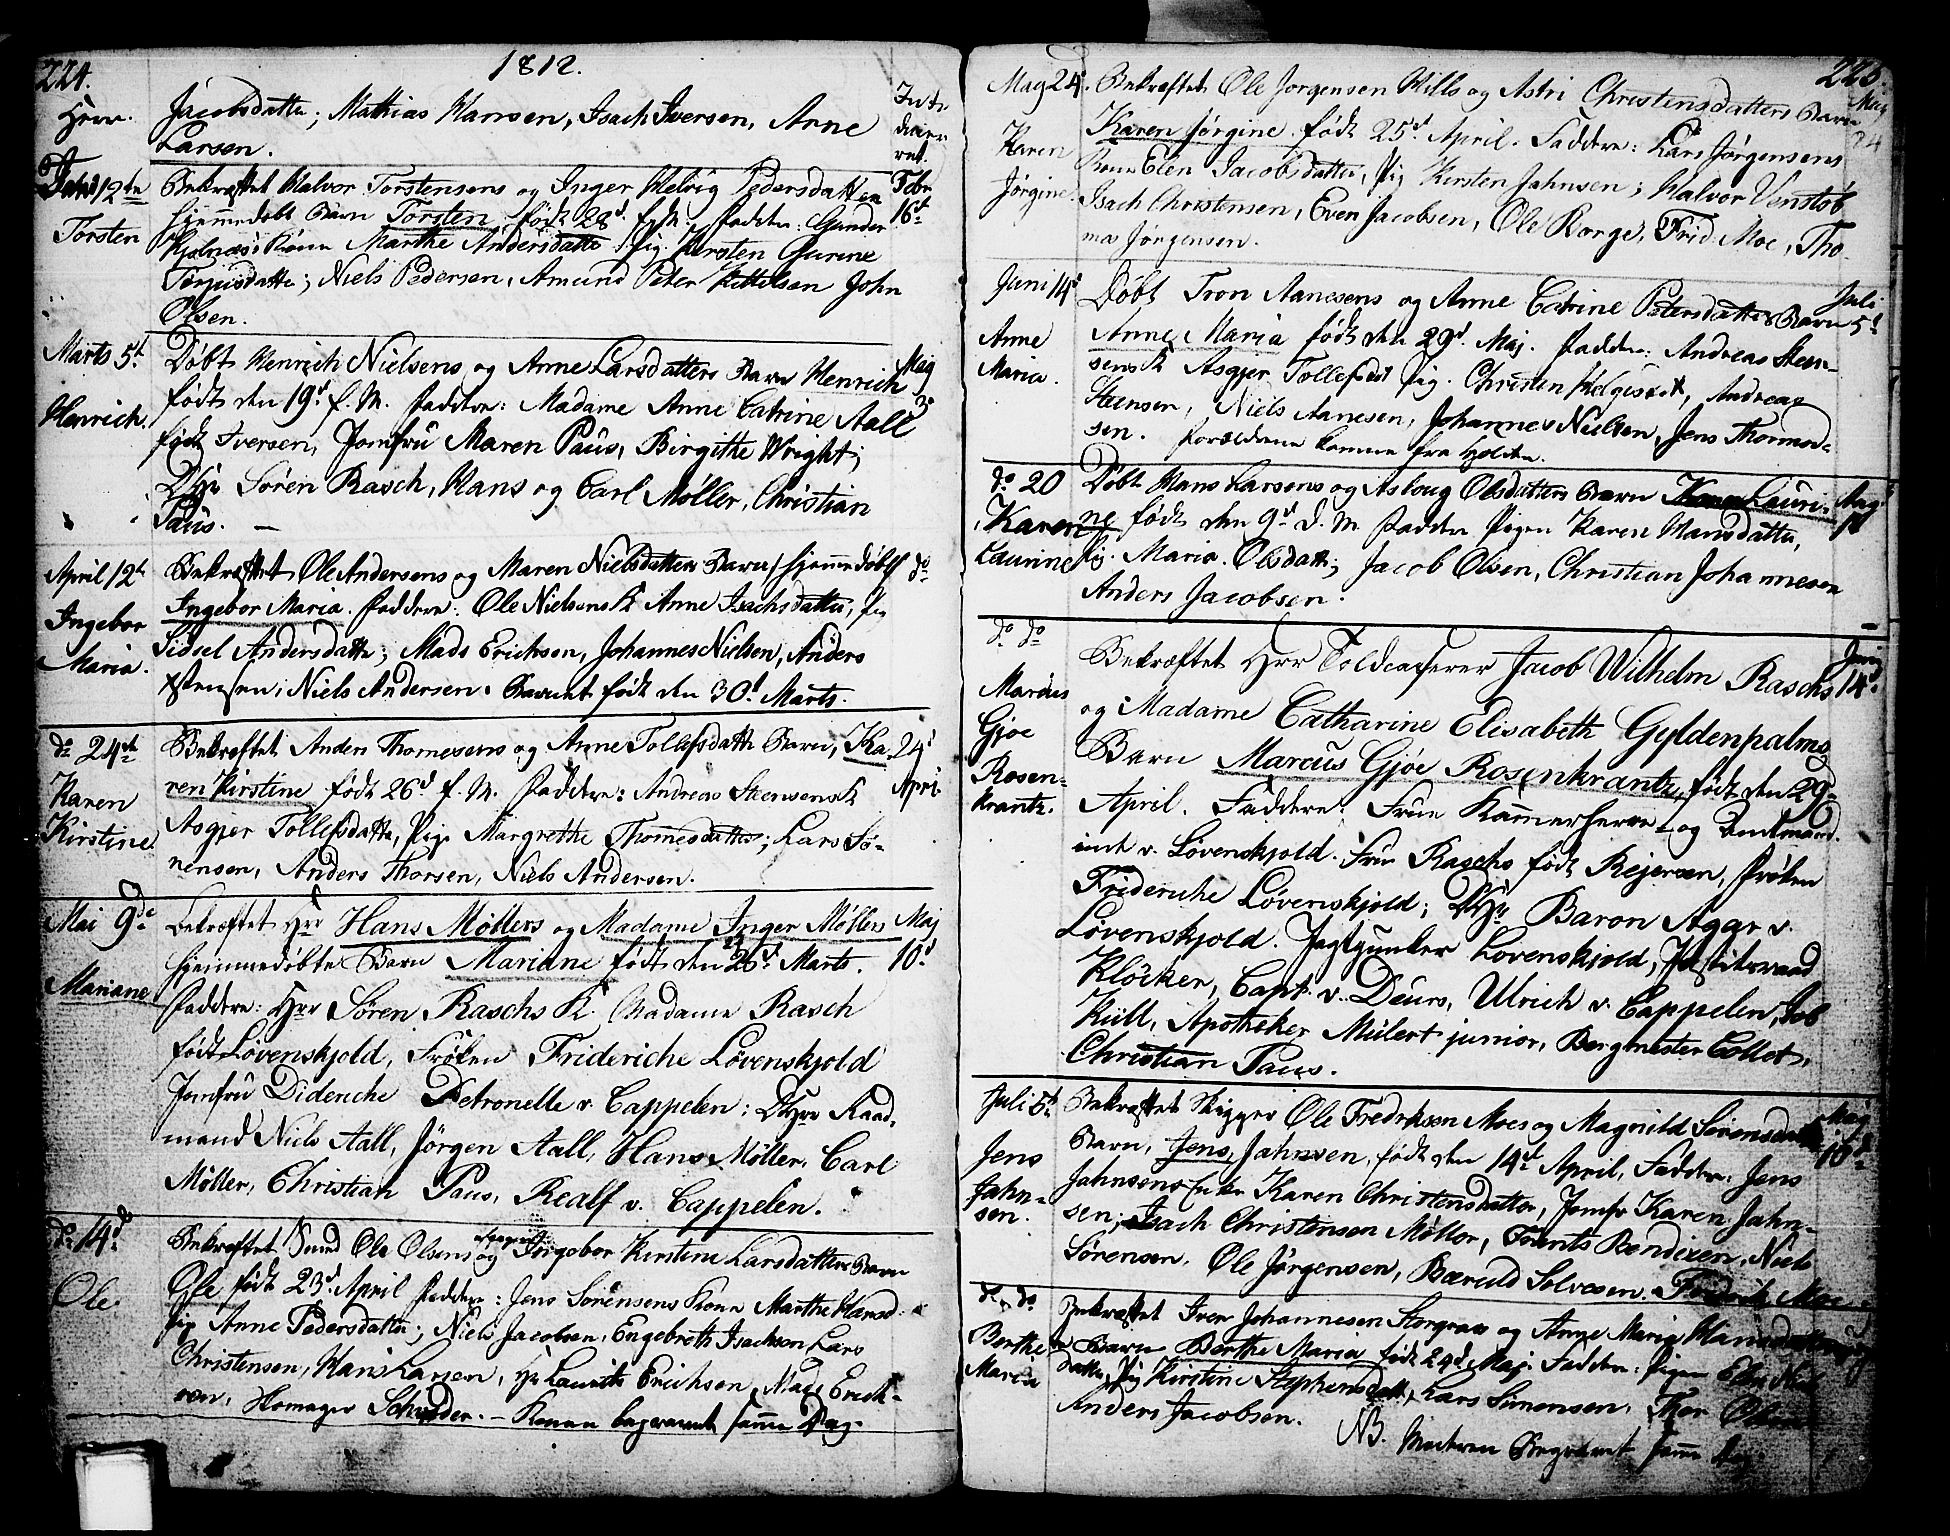 224.
1812.
Jacobsdatter; Mathias Hansen, Isach Iversen, Arne
Larsen.
Intr
12te
Torsten
Bekræftet Halvor Torstensens og Inger Helvig Pedersdatters
hjemmedøbt Barn Torsten, født 28d f. M. Faddere: Gunder
Kone Marthe Andersdatter, Pig. Kirsten Gurine
Torjusdatter; Niels Pedersen, Amund Peter Kittelsen John
Olsen.
Febr
16d
Marts 5t
Henrich
Døbt Henrich Nielsens og Anne Larsdatters Barn Henrich
født den 19d f. M. Faddere: Madame Anne Catrine Aall
født Iversen, Jomfru Maren Paus, Birgithe Wright;
DHr Søren Rasch, Hans og Carl Møller, Christian
Paus. —
Maj
3
April 12t
Ingebor
Maria.
Bekræftet Ole Andersens og Maren Nielsdatters Barn hjemmedøbt
Ingebor Maria. Faddere: Ole Nielsens K Anne Isachsdatter, Pig
Sidsel Andersdatter; Mads Erichsen, Johannes Nielsen, Anders
Stensen, Niels Andersen. Barnet født den 30d Marts.
do
do 24de
Karen
Kirstine
Bekræftet Anders Thomesens og Anne Tollefsdatters Barn, Ka-
ren Kirstine født 26d f. M. Faddere: Andreas Steensens K
Asgjer Tollefsdatter, Pige Margrethe Thomesdatter; Lars Sø-
rensen, Anders Thorsen, Niels Andersen.
24d
April
Mai 9de
Mariane
Bekræftet Hrr Hans Møllers og Madame Inger Møllers
hjemmedøbte Barn Mariane født den 26d Marts.
Faddere: Hrr Søren Raschs K. Madame Rasch
født Løvenskjold, Frøken Frideriche Løvenskjold
Jomfru Dideriche Petronelle v. Cappelen; DHrr Raad-
mand Niels Aall, Jørgen Aall, Hans Møller, Carl
Møller, Christian Paus, Realf v. Cappelen.
Maj
10d
do 14d
Ole
Bekræftet Smed Ole Olsens og Ingebor Kirstine Larsdatters Barn
Ole født 23d April Faddere: Jens Sørensens Kone Marthe Hansd.
Pig Anne Pedersdatter; Niels Jacobsen, Engebreth Isachsen, Lars
Christensen, Hans Larsen, Hr Laurits Erichsen, Mads Erich-
sen, Schrøder. — Konen begravet samme Dag.
225.
Maj 24.
Karen
Jørgine.
Bekræftet Ole Jørgensen Hills og Astri Christensdatters Barn
Karen Jørgine født 25d April. Faddere: Lars Jørgensens
Kone Elen Jacobsdatter, Pig Kirsten Jahnsen; Halvor Venstøb
Isach Christensen, Even Jacobsen, Ole Borge, Frid. Moe, Tho-
mas Jørgensen.
Maj
24
Juni 14d
Anne
Maria.
Døbt Tron Aanesens og Anne Catrine Petersdatters Barn
Anne Maria født den 29d Maj. Faddere: Andreas Steen-
sens K Asgjer Tollefsdt Pig. Christen Helgesdt, Andreas
Steensen, Niels Aanesen, Johannes Nielsen, Jens Thormod-
sen. Forældrene komne fra Holden.
Juli
5d
do 20
Karen
Laurine
Døbt Hans Larsens og Aslaug Olsdatters Barn Karen Lauri-
ne født den 9d d. M Faddere Pigen Karen Hansdatter,
Pig. Maria Olsdatt; Jacob Olsen, Christian Johannesen
Anders Jacobsen.
do do
Marcus
Gjøe
Rosen-
krantz.
Bekræftet Hrr Toldcasserer Jacob Wilhelm Raschs
og Madame Catharine Elisabeth Gyldenpalms
Barn Marcus Gjøe Rosenkrantz, født den 29d
April. Faddere: Frue Kamerherre- og Amtmand-
inde v. Løvenskjold. Frue Raschs født Rejersen, Frøken
Frideriche Løvenskjold; DHr Baron Aggr v.
Løvenskjold. Jagtjunker Løvenskjold, Justitsraad
Kløcker, Capt. v. Deurs, Ulrich v. Cappelen, Job
Kiill, Apotheker Mülert junior, Bergmester Collet,
Christian Paus.
Juni
14d
Juli 5t
Jens
Jahn-
sen.
Bekræftet Skipper Ole Fredriksen Moes og Magnild Sørensdatters
Barn, Jens Jahnsen, født den 14d April, Faddere: Jens
Jahnsens Enke Karen Christensdatter, Jomfr Karen Jahn-
sen; Isach Christensen Møller, Torints Bendixen, Niels
Sørensen, Ole Jørgensen, Bæruld Solvesen, Fredrik Moe
Maj
10d
do do
Berthe
Maria
Bekræftet Iver Johannesen Storgraas og Anne Maria Hansdatters
Barn Berthe Maria født 24d Maj. Faddere: Pigen Ellen Niels-
datter, Pig Kirstine Stephensdatt, Lars Simensen, Thor Olsen
Anders Jacobsen.
NB. Moderen Begravet samme Dag.